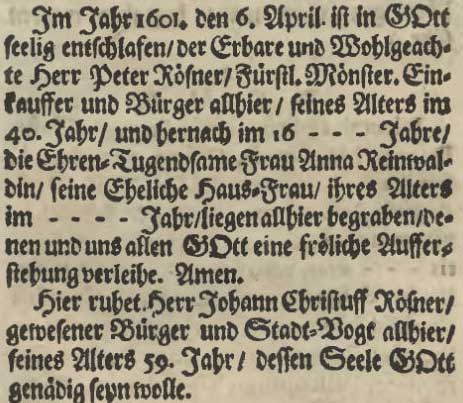 Im Jahr 1601. den 6. April. ist in GOtt
seelig entschlafen/ der Erbare und Wohlgeach-
te Herr Peter Rösner/ Fürstl. Mönster. Ein-
kauffer und Bürger allhier/ seines Alters im
40. Jahr/ und hernach im 16 - - - Jahre/
die Ehren-Tugendsame Frau Anna Reinwal-
din/ seine Eheliche Haus-Frau/ ihres Alters
im - - - - Jahr/ liegen allhier begraben/ de-
nen und uns allen GOtt eine fröliche Auffer-
stehung verleihe. Amen.
Hier ruhet Herr Johann Christuff Rösner/
gewesener Bürger und Stadt-Vogt allhier/
seines Alters 59. Jahr/ dessen Seele GOtt
genädig seyn wolle.